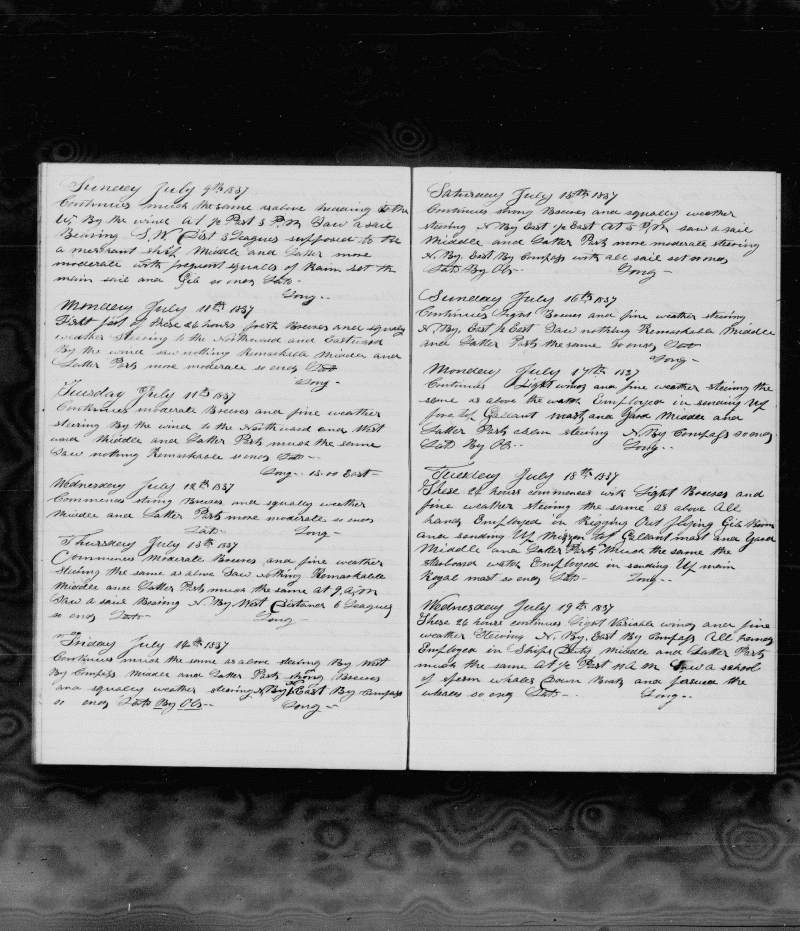 Sunday July 9th 1837
Continues much the same as above heading to the
W. By the wind At ½ Past 3 P.M Saw a sail
Bearing S.W. Dist 3 Leagues supposed to be
a merchant ship Middle and Latter more
moderate with frequent squalls of Rain set the
main sail and Gib so ends Lat-
Long--
Monday July 10th 1837
First part of these 24 hours fresh Breeses and squaly
weather Steering to the Northward and Eastward
By the wind saw nothing Remarkable Middle and
Latter Parts more moderate so ends Lat
Long-
Tuesday July 11th 1837
Continues moderate Breeses and fine weather
steering By the wind to the Northward and West
ward Middle and Latter Parts much the same
Saw nothing Remarkable so ends Lat--
Long-- 15.00 East-
Wednesday July 12th 1837
Commences strong Breeses and squally weather
Middle and Latter Parts more moderate so ends
Lat- Long-
Thursday July 13th 1837
Commences Moderate Breeses and fine weather
steering the same as above Saw nothing Remarkable
Middle and Latter Parts much the same at 9 A,M
Saw a sail Bearing N. By West Distance 6 Leagues
so ends Lat- Long
Friday July 14th 1837
Continues much the same as above steering By West
By Compass Middle and Latter Parts strong Breeses
and squally weather steering N By East By Compass
so ends Lat By Ob-- Long--
Saturday July 15th 1837
Continues strong Breeses and squally weather
steering N By East ½ East At 5 P,M saw a sail
Middle and Latter Parts more moderate steering
N. By. East By Compass with all sail set so ends
Lat By Ob-- Long--
Sunday July 16th 1837
Continues Light Breeses and fine weather steering
N. By. East ½ East Saw nothing Remarkable Middle
and Latter Parts the same so ends Lat
Long-
Monday July 17th 1837
Continues Light winds and fine weather steering the
same as above the watch Employed in sending Up
fore top Gallant mast and Yard Middle and
Latter Parts calm steering N. By Compass so ends
Lat By Ob-- Long--
Tuesday July 18th 1837
These 24 hours commences with Light Breeses and
fine weather steering the same as above All
hands Employed in Rigging Out flying Gib Boom
and sending Up Mizzen top Gallant mast and Yard
Middle and Latter Parts Much the same the
starboard watch Employed in sending Up main
Royal mast so ends Lat- Long--
Wednesday July 19th 1837
These 24 hours continues Light Variable winds and fine
weather Steering N. By. East By Compass All hands
Employed in Ships Duty Middle and Latter Parts
much the same At ½ Past 11 A M Saw a school
of sperm whales Down Boats and persued the
whales so ends Lat-- Long--